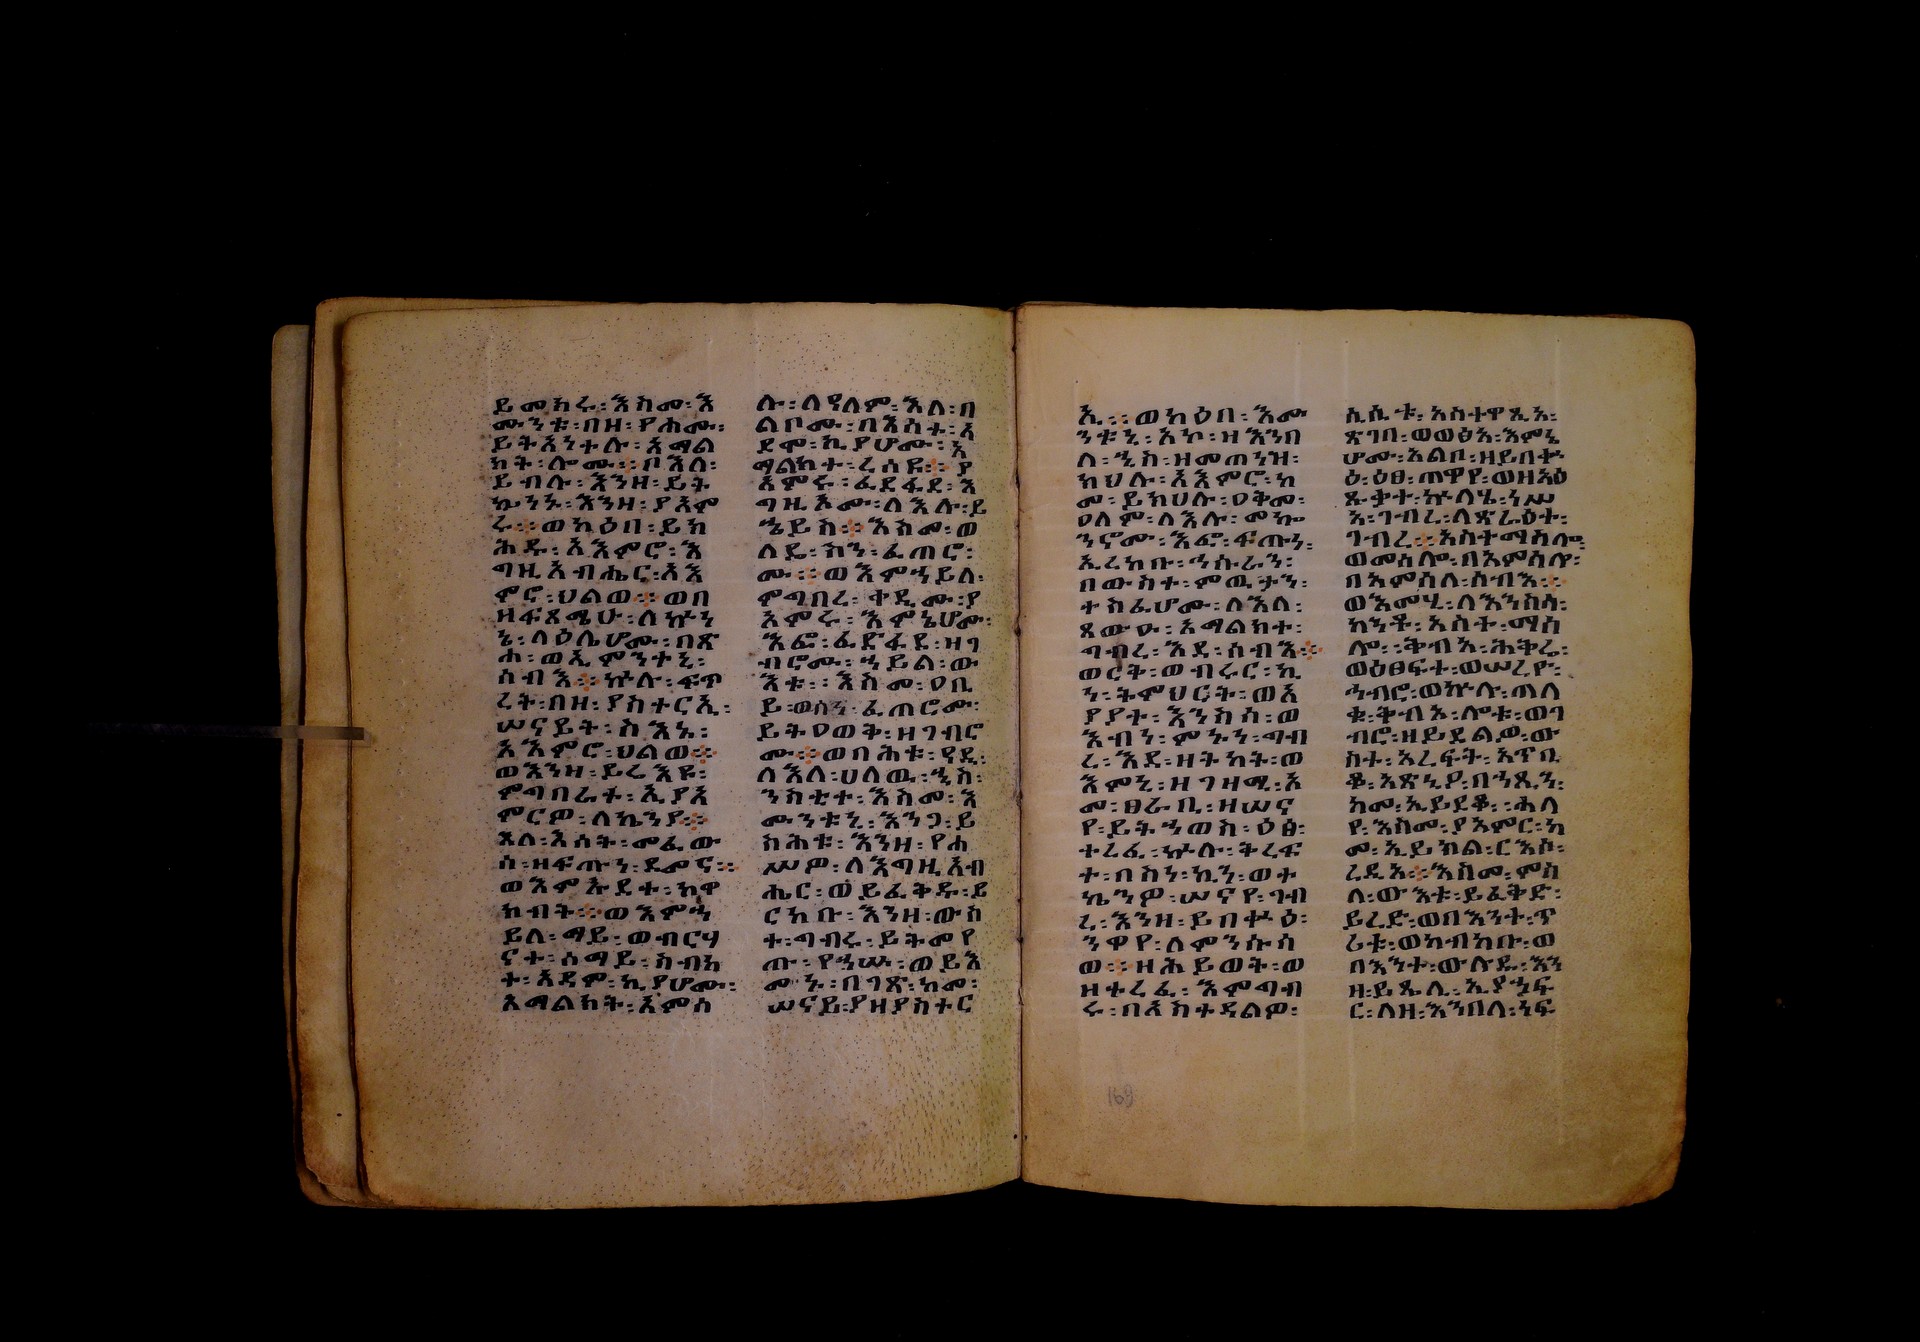 ይመክሩ፡እስመ፡እ
ሙንቱ፡በዘ፡የሐሙ፡
ይትእንተሉ፡አማል
ክት፡ሎሙ።ቦእለ፡
ይብሉ፡እንዘ፡ይት
ኴንኑ፡እንዘ፡ያአም
ሩ።ወካዕበ፡ይክ
ሕዱ፡አእምሮ፡እ
ግዚአብሔር፡አእ
ምሮ፡ህልወ።ወበ
ዘፍጻሜሁ፡ለኵን
ኔ፡ላዕሌሆሙ፡በጽ
ሐ፡ወኢምንተኒ፡
ሰብእ።ኵሉ፡ፍጥ
ረት፡በዘ፡ያስተርኢ፡
ሠናይት፡ስእኑ፡
አእምሮ፡ህልወ።
ወእንዘ፡ይሬእዩ፡
ምግባራተ፡ኢያአ
ምርዎ፡ለኬንያ።
አለ፡እሳት፡መፈው
ሰ፡ዘፍጡነ፡ደመና።
ወእምኡደተ፡ከዋ
ክብት።ወእምኀ
ይለ፡ማይ፡ወብርሃ
ናተ፡ሰማይ፡ስብከ
ተ፡አዳም፡ኪያሆሙ፡
አማልክት፡አምሰ
ሉ፡ለዓለም፡እለ፡በ
ልቦሙ፡በእስተ፡አ
ደሞ፡ኪያሆሙ፡አ
ማልክተ፡ረሰዩ።ያ
አምሩ፡ፈደፋደ፡እ
ግዚኦሙ፡ለእሉ፡ይ
ኄይስ።እስመ፡ወ
ላዴ፡ስን፡ፈጠሮ
ሙ።ወእምኀይለ፡
ምግባረ፡ቀዲሙ፡ያ
አምሩ፡እምኔሆሙ፡
እፎ፡ፈድፋደ፡ዘገ
ብሮሙ፡ኀይል፡ው
እቱ፡እስመ፡ዐቢ
ይ፡ወሰን፡ፈጠሮሙ፡
ይትዐወቅ፡ዘገብሮ
ሙ።ወበሕቱ፡ዓዲ፡
ለእለ፡ሀለዉ፡ኂስ፡
ንስቲተ፡እስመ፡እ
ሙንቱኒ፡እንጋ፡ይ
ስሕቱ፡እንዘ፡የሐ
ሥዎ፡ለእግዚአብ
ሔር፡ወይፈቅዱ፡ይ
ርከቡ፡እንዘ፡ውስ
ተ፡ግብሩ፡ይትመየ
ጡ፡የኀሥሡ፡ወይእ
መኑ፡በገጽ፡ከመ፡
ሠናይ፡ያዘያስተር
ኢ።ወካዕበ፡እሙ
ንቱኒ፡አኮ፡ዘእንበ
ለ፡ኂስ፡ዘመጠነዝ፡
ክህሉ፡አእምሮ፡ከ
መ፡ይክህሉ፡ዐቅመ፡
ዐለም፡ለእሉ፡መኰ
ንኖሙ፡እፎ፡ፍጡነ፡
ኢረከቡ፡ኀሱራን፡
በውስተ፡ምዉታን፡
ተስፋሆሙ፡ለእለ፡
ጸውዑ፡አማልክተ፡
ግብረ፡እደ፡ሰብእ።
ወርቅ፡ወብሩር፡ኪ
ነ፡ትምህርት፡ወአ
ያያተ፡እንስሳ፡ወ
እብን፡ምኑን፡ግብ
ረ፡እደ፡ዘትካት፡ወ
እምኒ፡ዘገዘሚ፡አ
መ፡ፀራቢ፡ዘሠና
የ፡ይትኀወስ፡ዕፀ፡
ተረፈ፡ኵሉ፡ቅረፍ
ተ፡በስነ፡ኪን፡ወተ
ኬንዎ፡ሠናየ፡ገብ
ረ፡እንዘ፡ይበቍዕ፡
ንዋየ፡ለምንሱሳ
ወ።ዘሕይወት፡ወ
ዘተረፈ፡እምግብ
ሩ፡በአስተዳልዎ፡
ሲሲቱ፡አስተዋጺኦ፡
ጽገበ፡ወወፅአ፡እምኔ
ሆሙ፡አልቦ፡ዘይበቍ
ዕ፡ዕፀ፡ጠዋየ፡ወዘአዕ
ጹቃተ፡ኵለሄ፡ነሥ
አ፡ገብረ፡ለጽራዕተ፡
ገብረ።አስተማሰሎ፡
ወመሰሎ፡በአምሳሉ፡
በአምሳለ፡ሰብእ።
ወእመሂ፡ለእንስሳ፡
ከንቶ፡አስተማሰ
ሎ፡ቅብአ፡ሕቅረ፡
ወዕፀፍተ፡ወሠረዮ፡
ኅብሮ፡ወኵሉ፡ጠለ
ቁ፡ቅብኦ፡ሎቱ፡ወገ
ብሮ፡ዘይደልዎ፡ው
ስተ፡አረፍት፡አጥቢ
ቆ፡አጽኒዖ፡በኀጺን፡
ከመ፡ኢይደቆ፡ሐለ
የ፡እስመ፡ያአምር፡ከ
መ፡ኢይክል፡ርእስ፡
ረዲአ።እስመ፡ምስ
ለ፡ውእቱ፡ይፈቅድ፡
ይረድ፡ወበእንተ፡ጥ
ሪቱ፡ወካብካቡ፡ወ
በእንተ፡ውሉዱ፡እን
ዘ፡ይጼሊ፡ኢያኀፍ
ር፡ለዘ፡እንበለ፡ነፍ